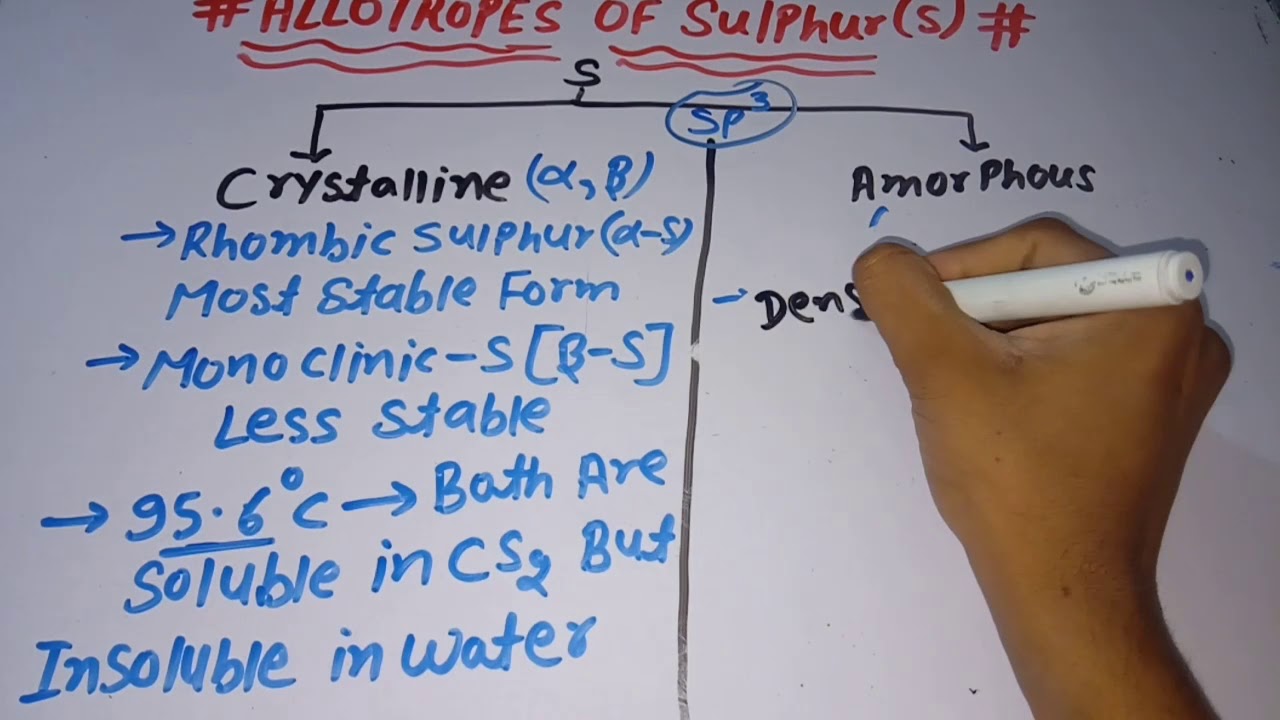 # ALLOTROPES OF Sulphur(s) #
S
SP³
Crystalline (α, β)
→ Rhombic Sulphur (α-s)
Most Stable Form
→ Mono clinic - S [β-S]
Less Stable
→ 95.6°C → Bath Are
Soluble in CS₂ But
Insoluble in water
Amorphous
→ Dens